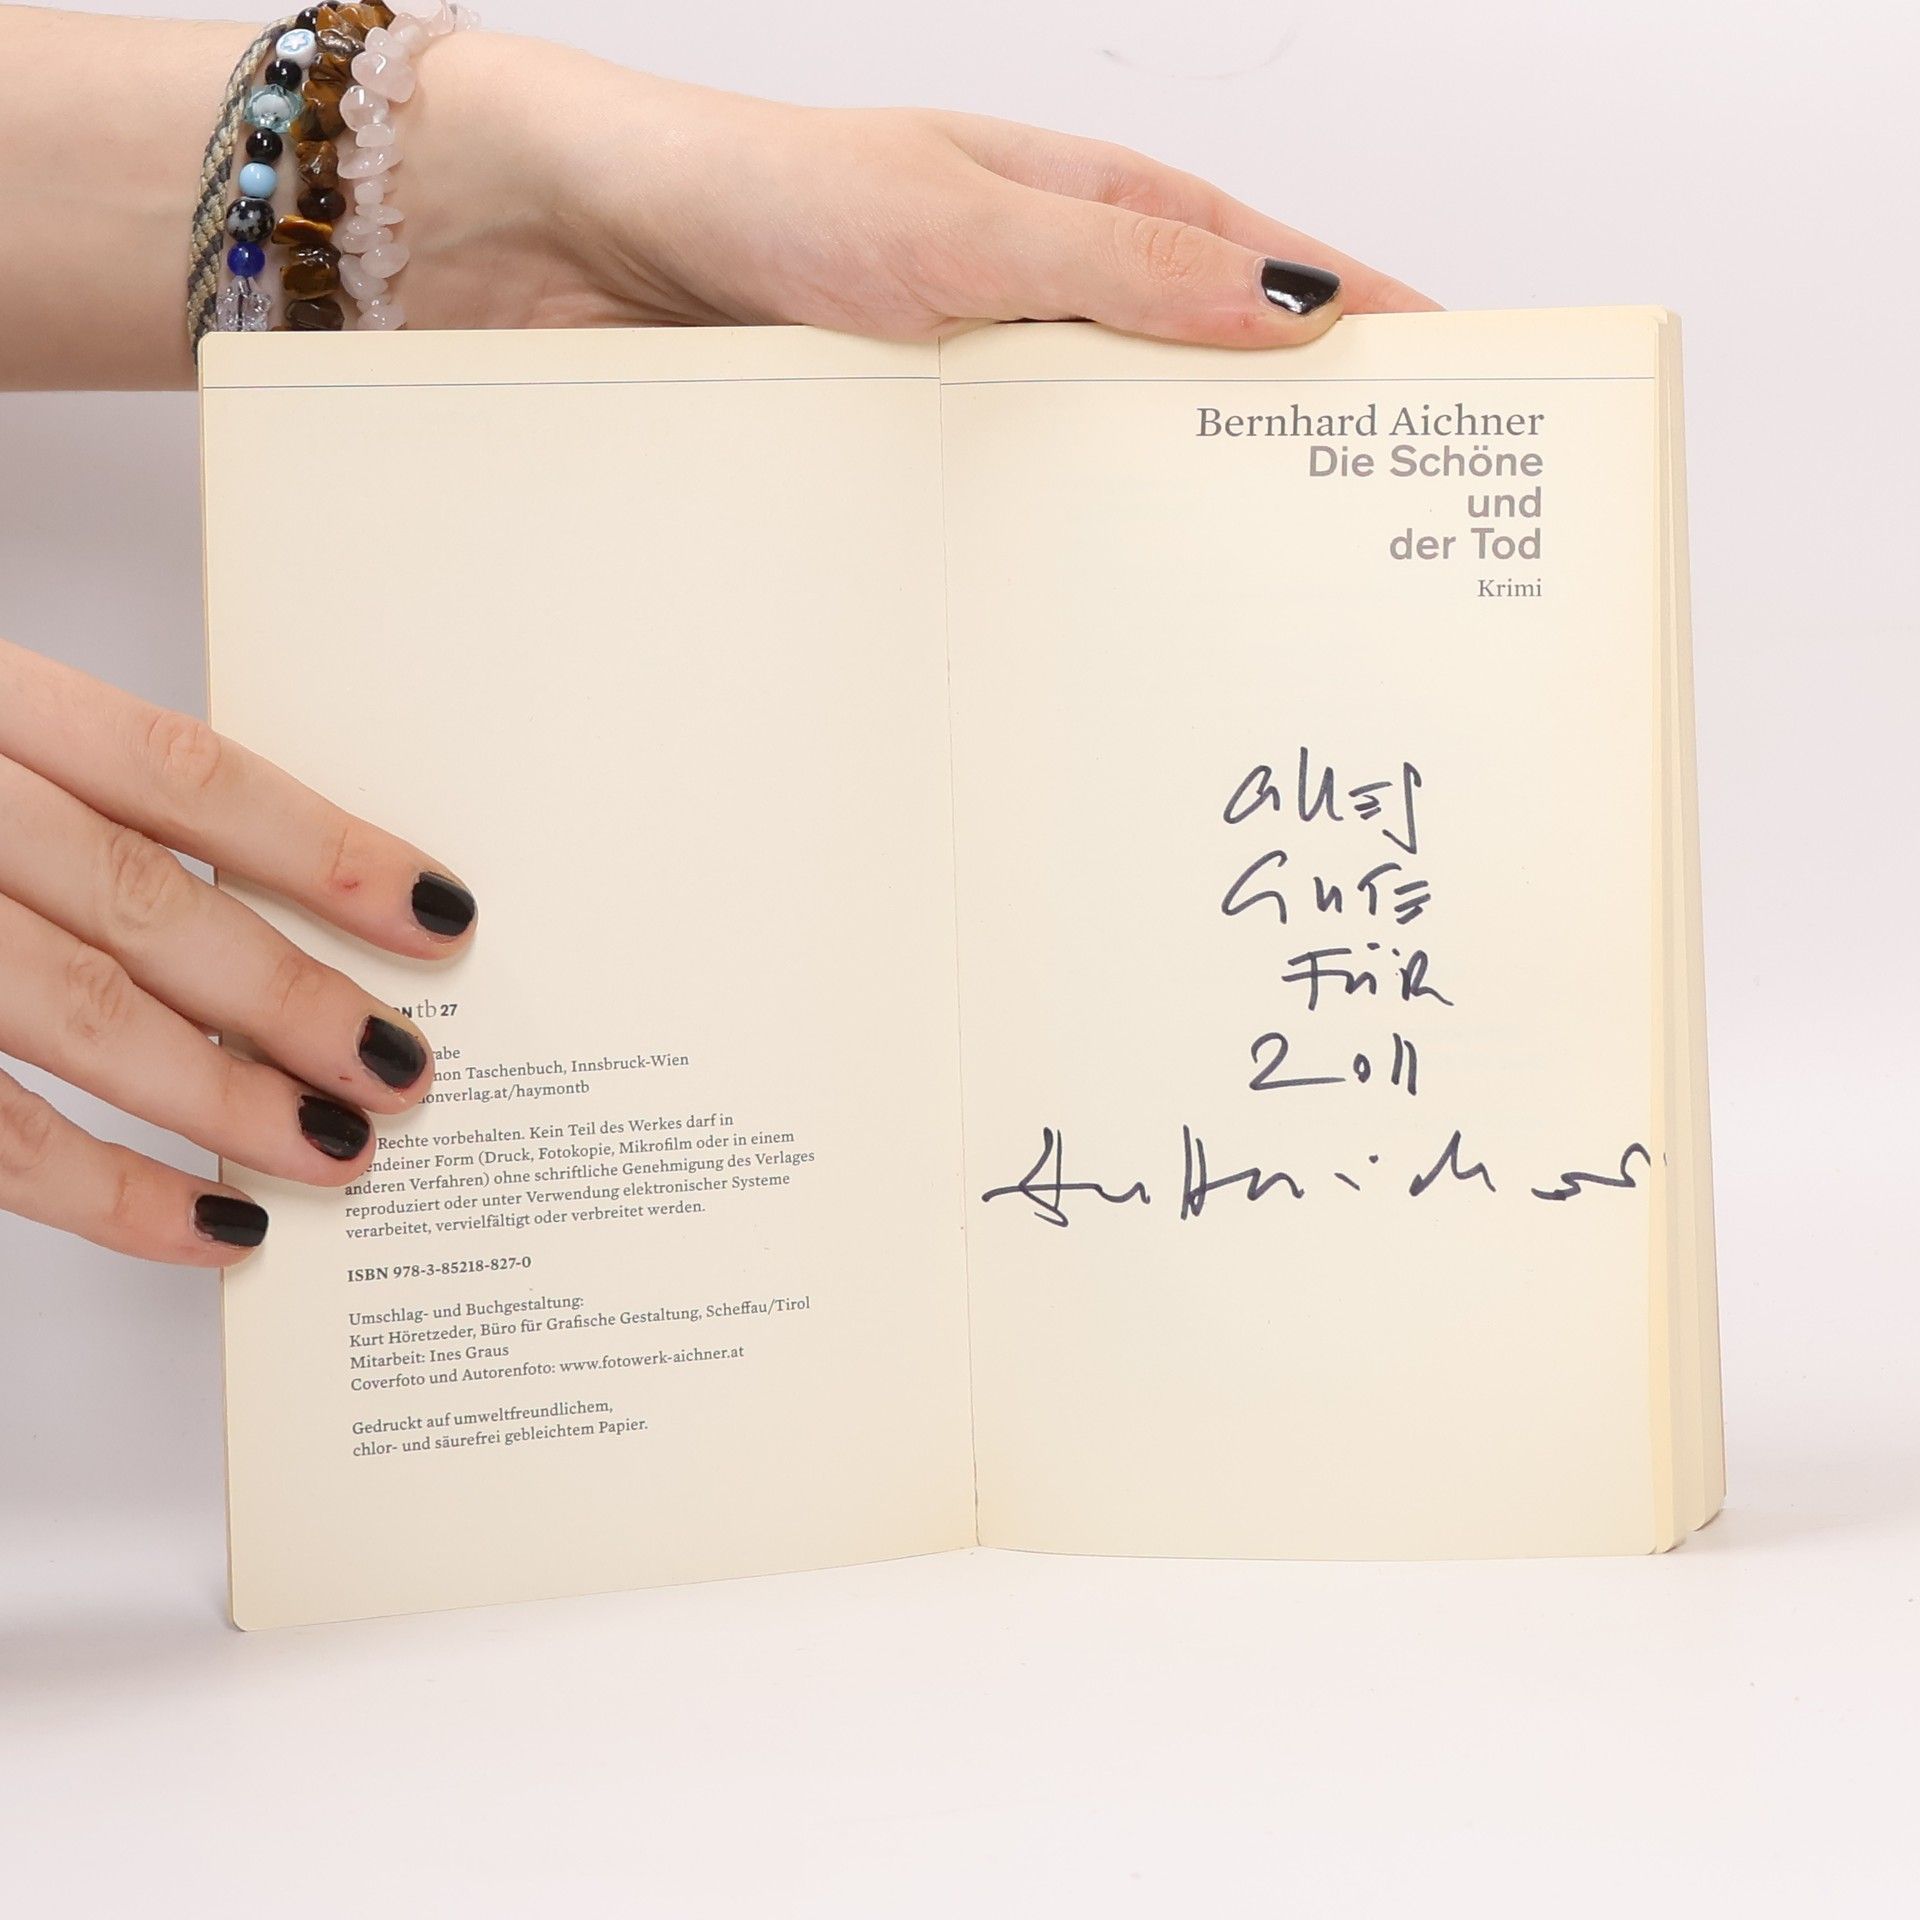 tb 27
Taschenbuch, Innsbruck-Wien
Rechte vorbehalten. Kein Teil des Werkes darf in
Form (Druck, Fotokopie, Mikrofilm oder in einem
anderen Verfahren) ohne schriftliche Genehmigung des Verlages
reproduziert oder unter Verwendung elektronischer Systeme
verarbeitet, vervielfältigt oder verbreitet werden.
ISBN 978-3-85218-827-0
Umschlag- und Buchgestaltung:
Kurt Höretzeder, Büro für Grafische Gestaltung, Scheffau/Tirol
Mitarbeit: Ines Graus
Coverfoto und Autorenfoto: www.fotowerk-aichner.at
Gedruckt auf umweltfreundlichem,
chlor- und säurefrei gebleichtem Papier.
Bernhard Aichner
Die Schöne
und
der Tod
Krimi
Alles
Gute
FüR
2011